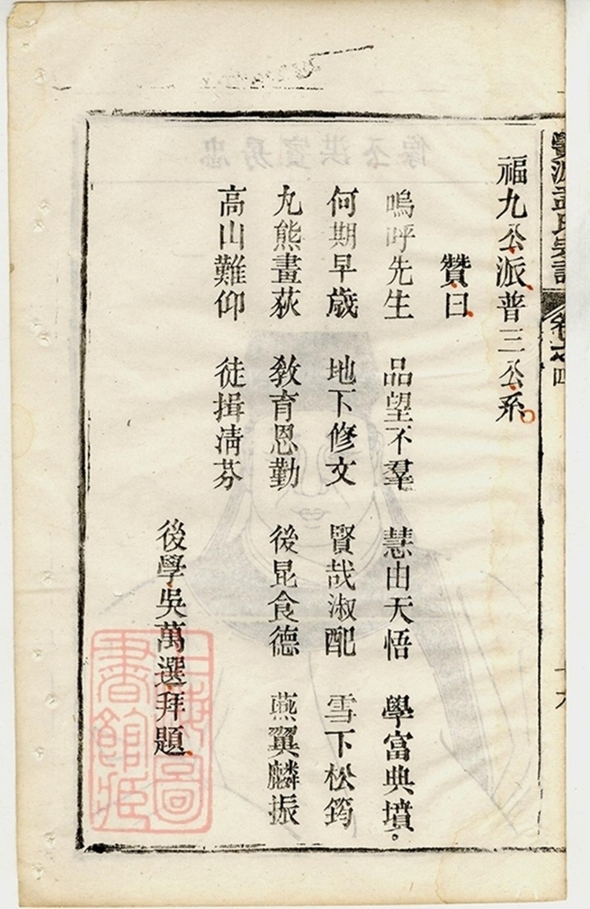 福九公派普三公系
贊曰
嗚呼先生 品望不羣 慧由天悟 學富典墳。
何期早歲 地下修文 賢哉淑配 雪下松筠
丸熊畫荻 敎育恩勤 後昆食德 燕翼麟振
高山難仰 徒揖清芬
後學吳萬選拜題